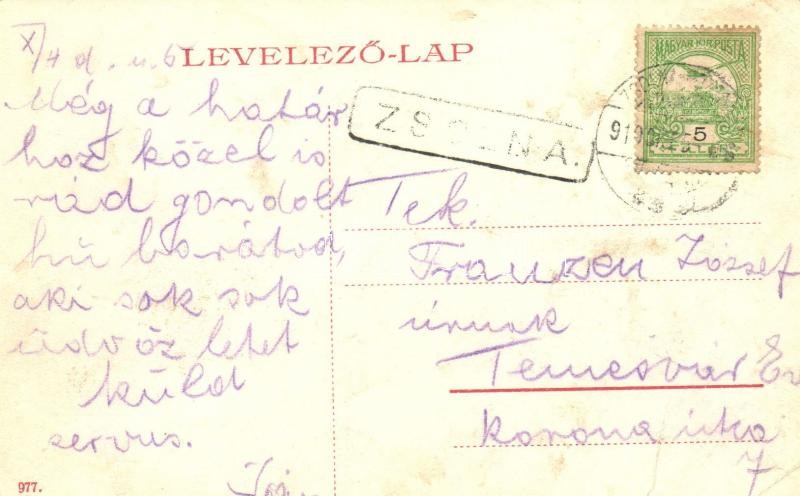 X/4 d. u. 6
LEVELEZŐ-LAP
Még a határ
hoz közel is
rád gondolt
hű barátod,
aki sok sok
üdvözletet
küld
servus.
977.
ZSOLNA.
MAGYAR KIR. POSTA
5
Tek.
Franzen József
úrnak
Temesvár
Korona utca
7